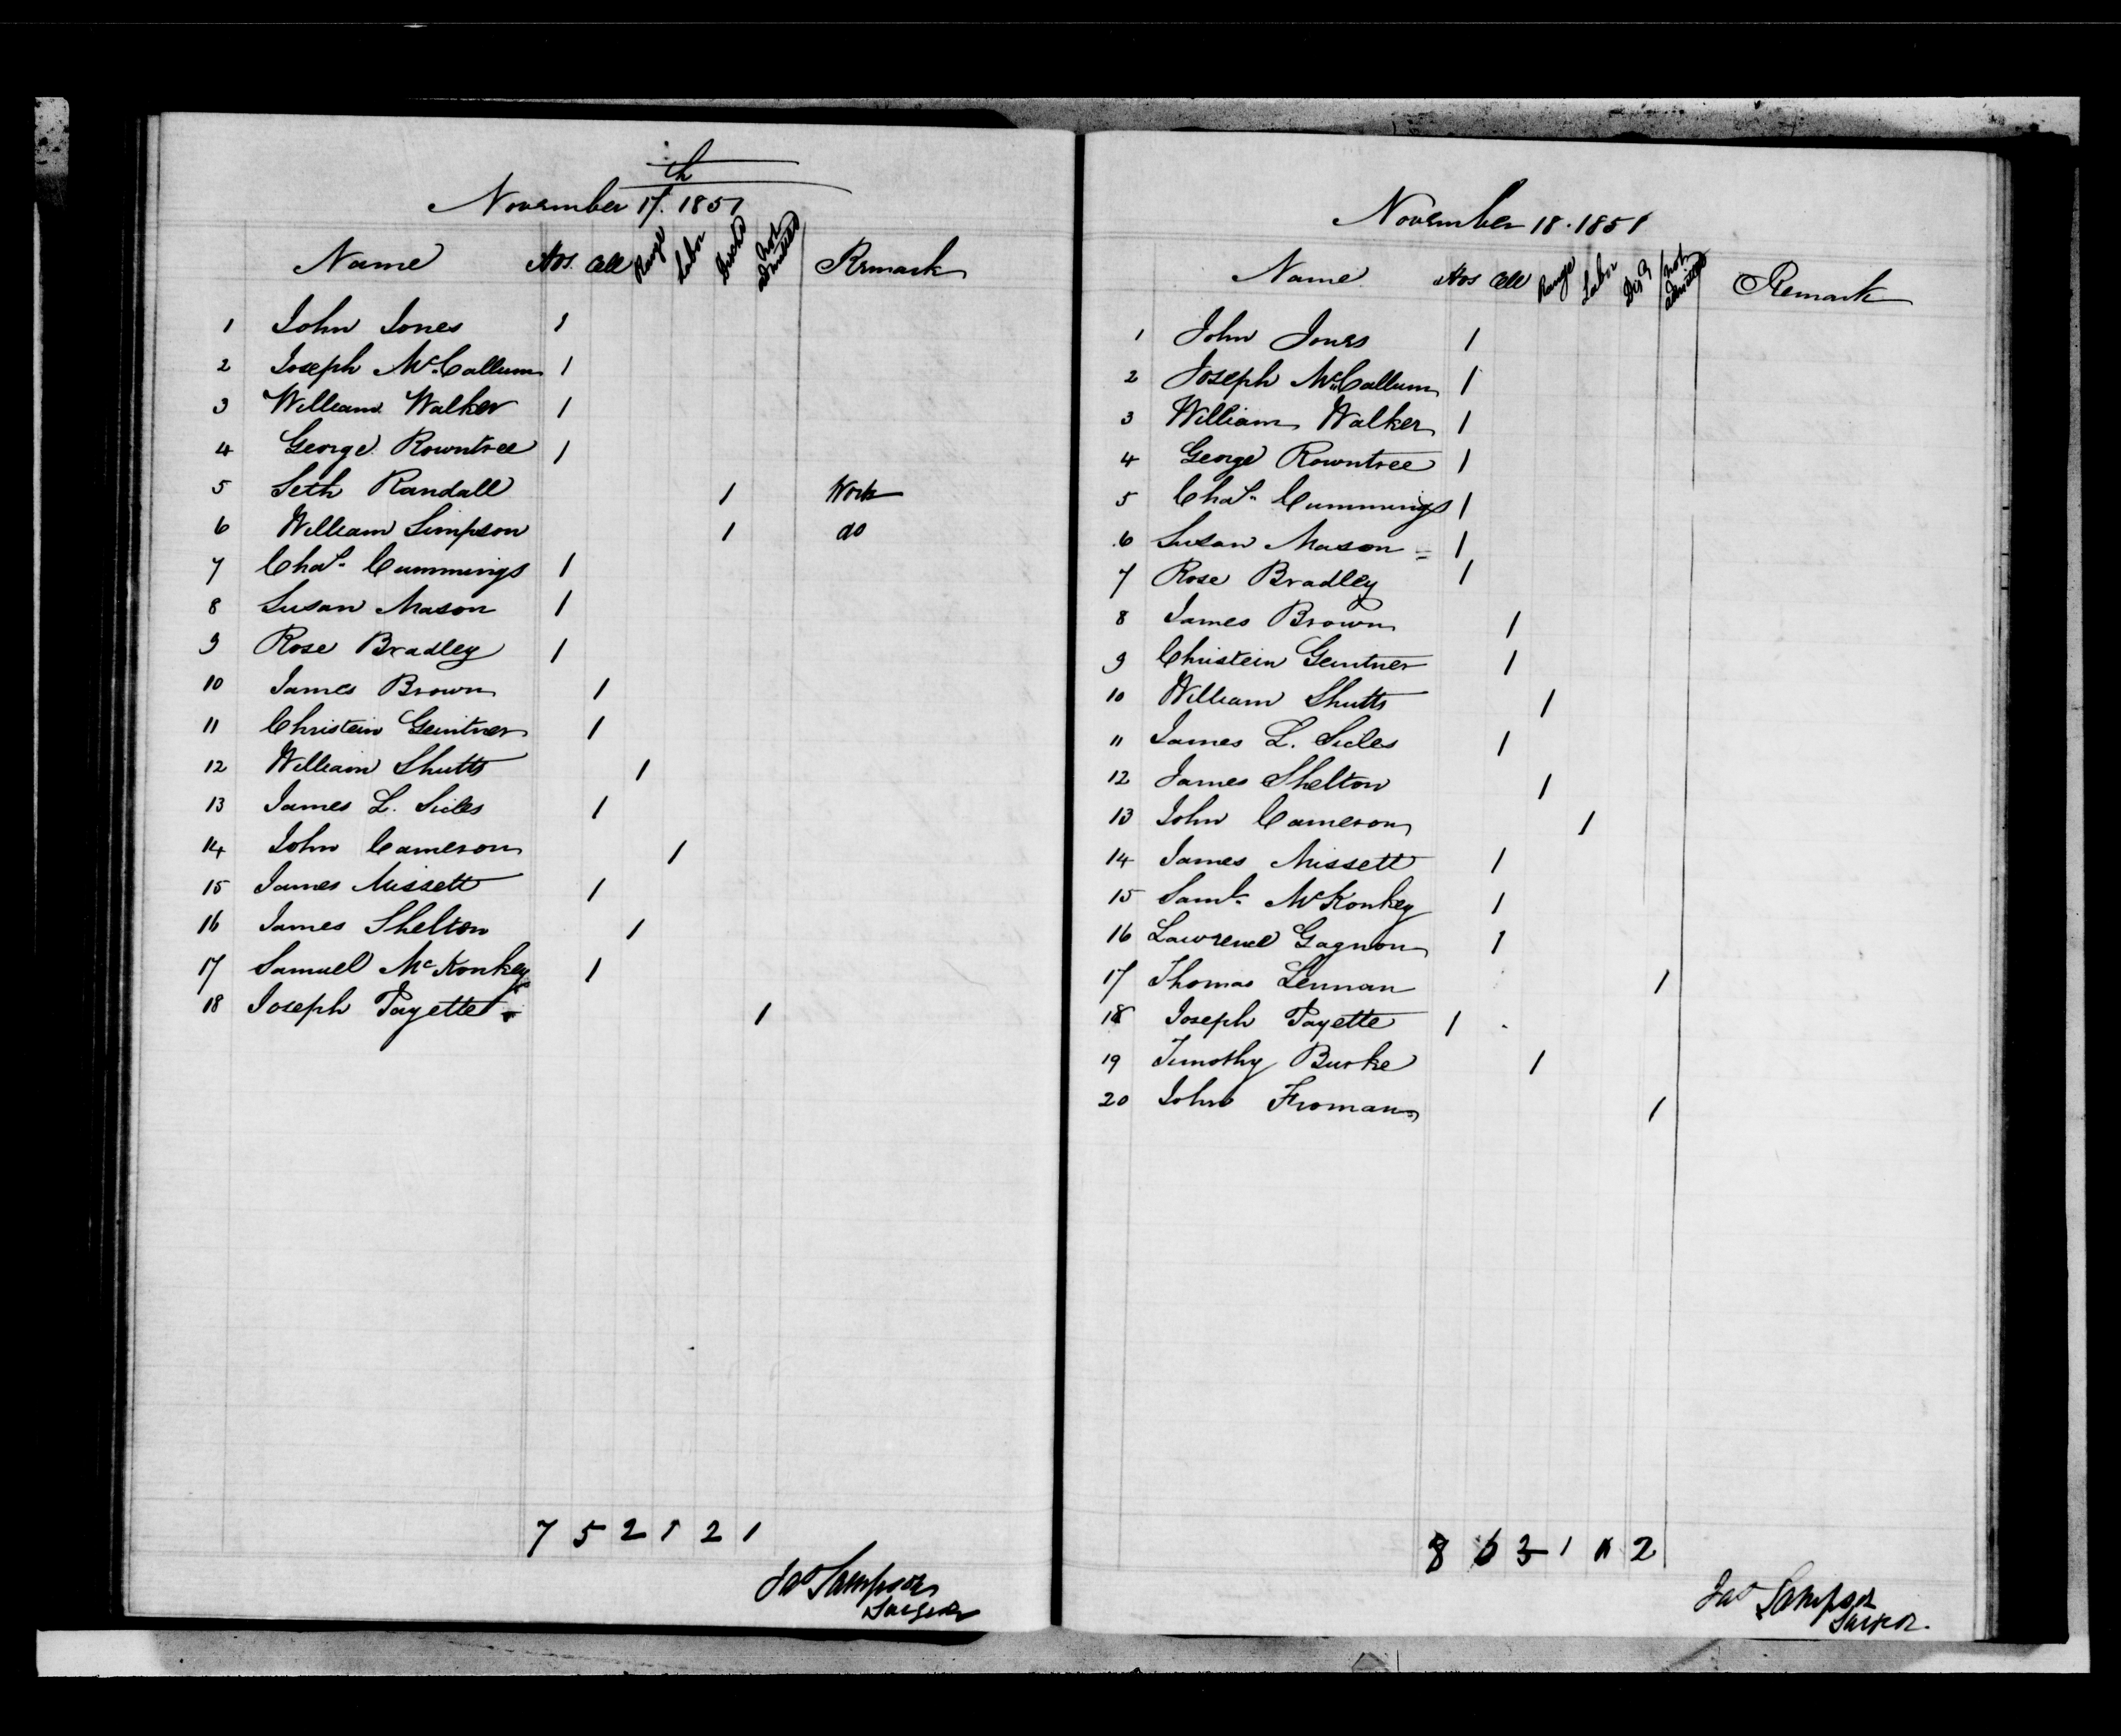 November 17th. 1851
Name Hos. Cell Range Labor Discha Not Admitted Remark
1 John Jones 1
2 Joseph McCallum 1
3 William Walker 1
4 George Rowntree 1
5 Seth Randall 1 Work
6 William Simpson 1 do
7 Chas. Cummings 1
8 Susan Mason 1
9 Rose Bradley 1
10 James Brown 1
11 Christein Geintner 1
12 William Shutts 1
13 James L. Sicles 1
14 John Cameron 1
15 James Missett 1
16 James Shelton 1
17 Samuel McKonkey 1
18 Joseph Payette 1
7 5 2 1 2 1
Jas Sampson
Surgeon
November 18. 1851
Name Hos Cell Range Labor Disd Not admitted Remark
1 John Jones 1
2 Joseph McCallum 1
3 William Walker 1
4 George Rowntree 1
5 Chas. Cummings 1
6 Susan Mason 1
7 Rose Bradley 1
8 James Brown 1
9 Christein Geintner 1
10 William Shutts 1
11 James L. Sicles 1
12 James Shelton 1
13 John Cameron 1
14 James Missett 1
15 Saml. McKonkey 1
16 Lawrence Gagnon 1
17 Thomas Lennan 1
18 Joseph Payette 1
19 Timothy Burke 1
20 John Froman 1
8 6 3 1 2
Jas Sampson
Surgeon